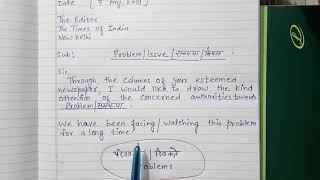 Date [ 7 May, 2018 ]
The Editor
The Times of India
New Delhi
Sub: Problem/Issue/समस्या/विषय
Sir,
Through the columns of your esteemed
newspaper, I would like to draw the kind
attention of the concerned authorities towards
Problem/समस्या.
We have been facing/watching this problem
for a long time
दिक्कतें
oblems